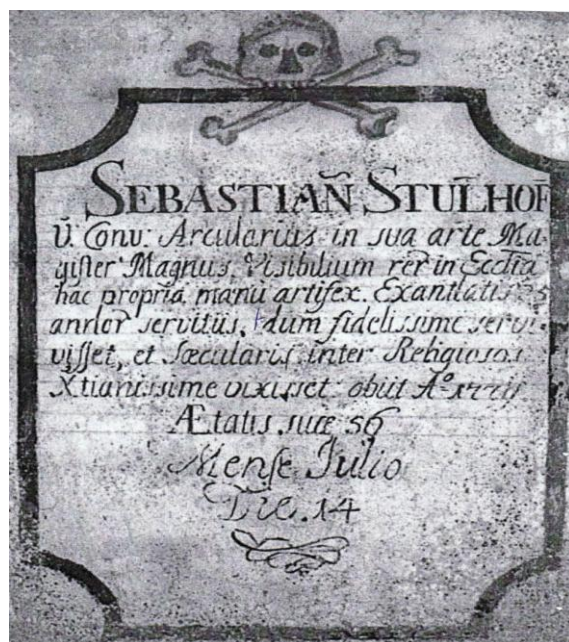 SEBASTIAÑ STUL̃HOF̃
V̄. Conv: Arcularius in sua arte Ma-
gister Magnus, Visibilium rer̄ in Ecclīa
hac propria manū artifex. Exantlatis
annor̄ servitūs, dum fidelissime servi-
visset, et Sæcularis inter Religiosos
Xtianissime vixisset: obiit Aº
Ætatis suæ 56
Mense Julio
Die. 14